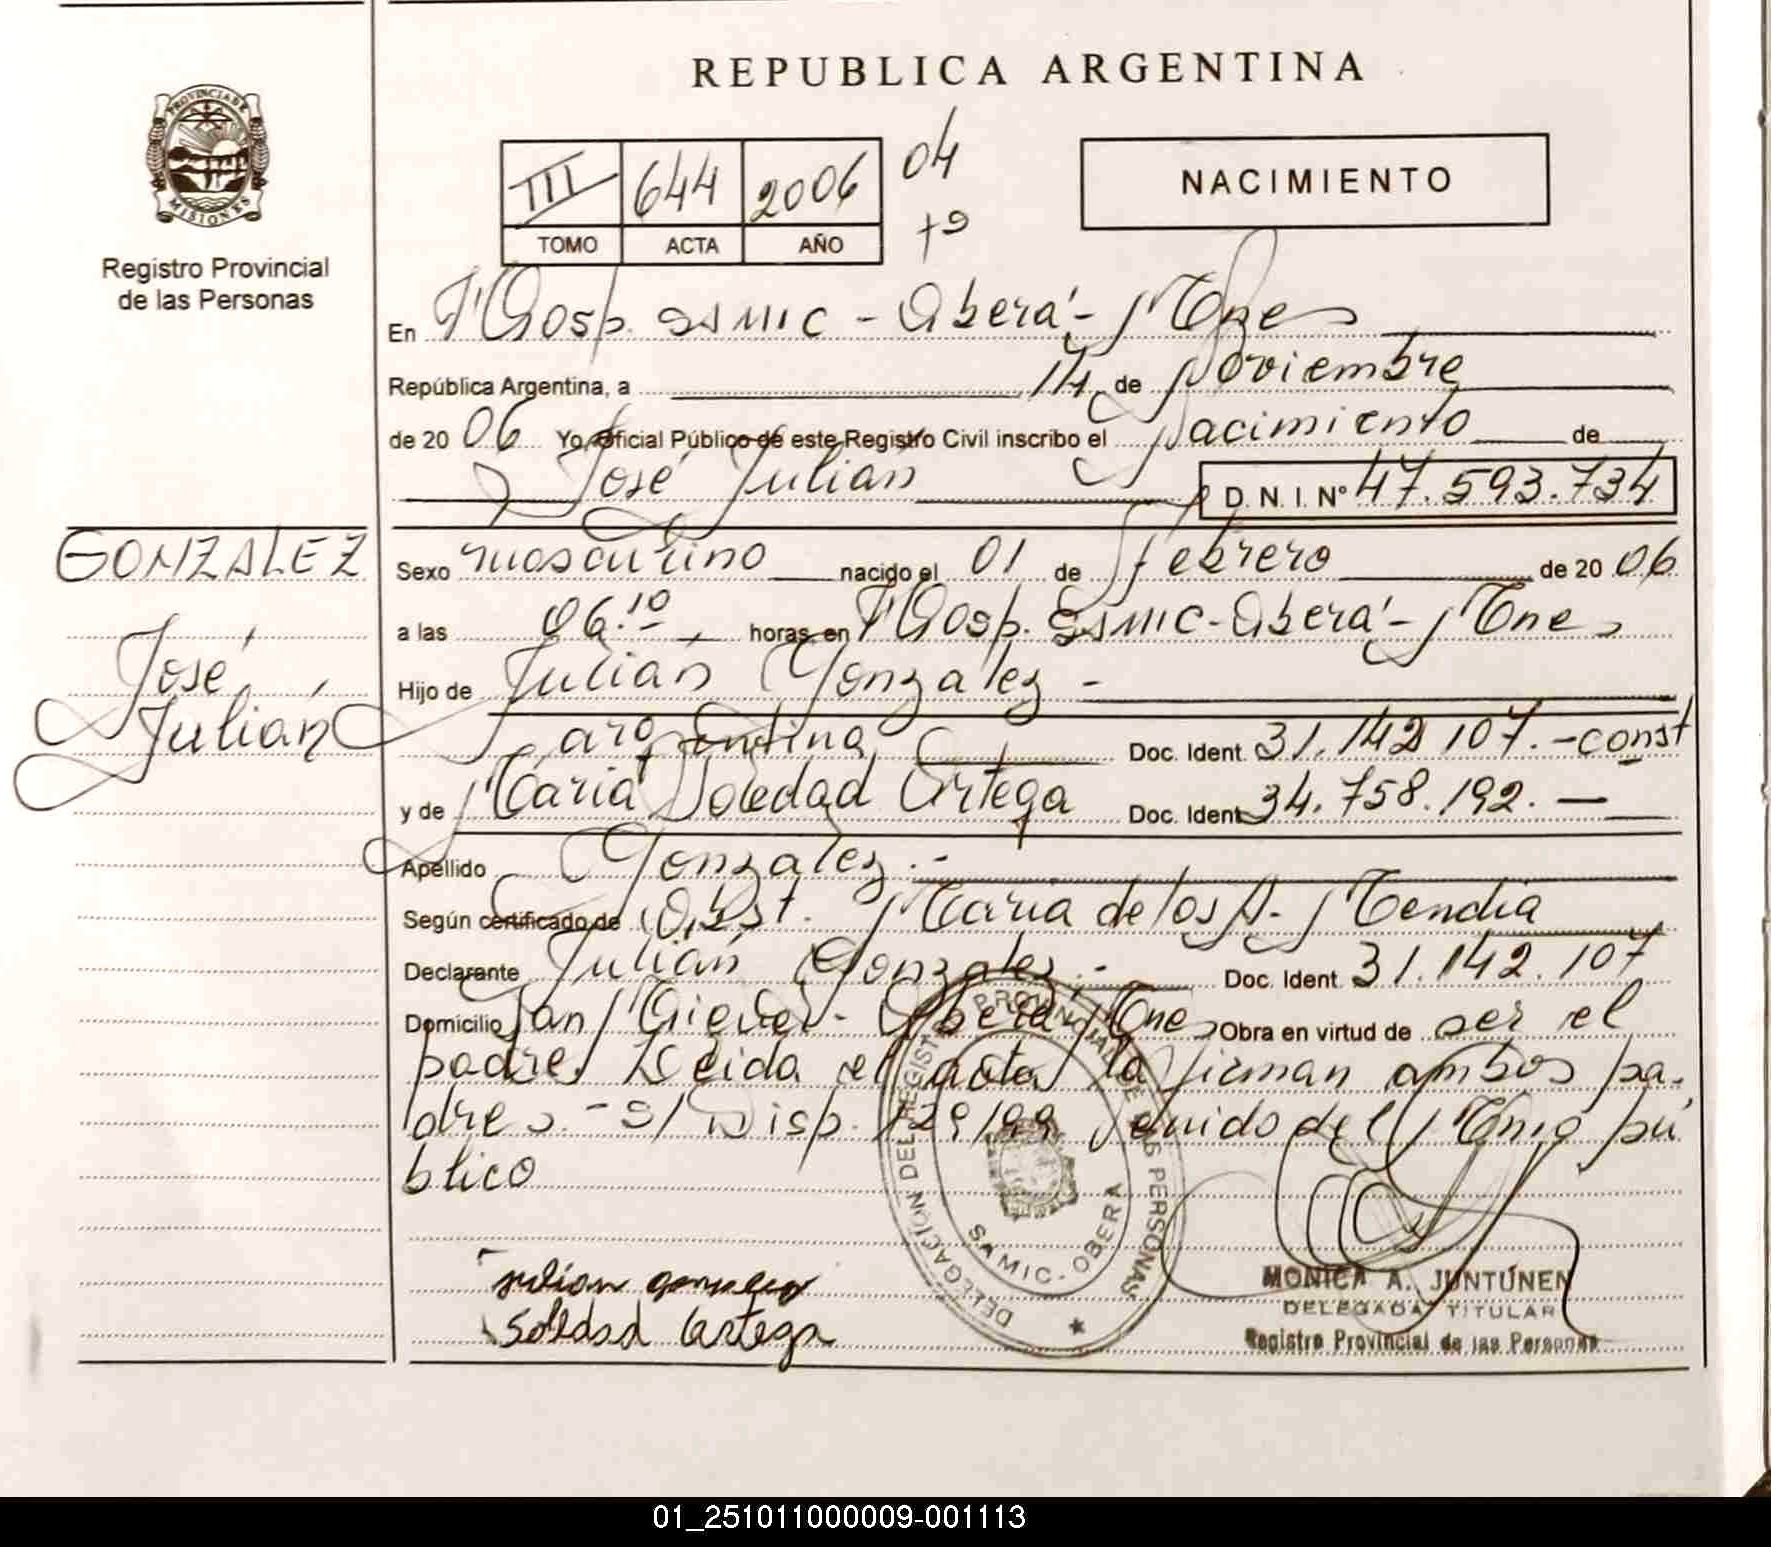 REPUBLICA ARGENTINA
PROVINCIA DE
MISIONES
Registro Provincial
de las Personas
III 644 2006 04
TOMO ACTA AÑO
NACIMIENTO
En Hosp. SAMIC - Oberá - Mnes
República Argentina, a 14 de Noviembre
de 20 06 Yo, Oficial Público de este Registro Civil inscribo el Nacimiento de
José Julián D. N. I. Nº 47.593.734
GONZALEZ
José
Julián
Sexo masculino nacido el 01 de febrero de 20 06
a las 06.10 horas, en Hosp. SAMIC - Oberá - Mnes
Hijo de Julián Gonzalez -
argentina Doc. Ident. 31.142 107. - const
y de María Soledad Ortega Doc. Ident. 34.758.192. -
Apellido Gonzalez . -
Según certificado de Obst. María de los A. Mendia
Declarante Julián Gonzalez. - Doc. Ident. 31.142.107
Domicilio San Oberá Mnes Obra en virtud de ser el
padre Leida el acta la firman ambos pa-
dres. - S/ Disp. 129/99 del pú
blico
DELEGACIÓN DEL REGISTRO PROVINCIAL DE LAS PERSONAS
SAMIC - OBERA
julian gonzalez
Soledad Ortega
MONICA A. JUNTUNEN
DELEGADA TITULAR
Registro Provincial de las Personas
01_251011000009-001113